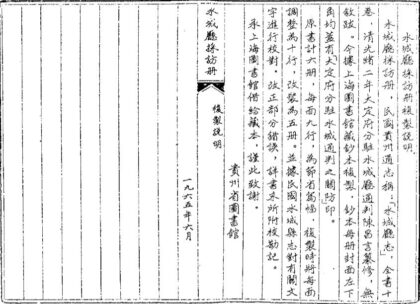 水城廳採訪册複製説明
水城廳採訪册，民國貴州通志稱：「水城廳志」，全書十
卷，清光緒二年大定府分駐水城廳通判陳昌言纂修，無
敘跋。今據上海圖書館藏鈔本複製，鈔本每册封面左下
角均蓋有大定府分駐水城通判之關防印。
原書計六册，每面九行，為節省篇幅，複製時將每面
調整為十行，改裝為五册。並據民國水城縣志對有關文
字進行校對。改正部分錯誤，詳書末所附校勘記。
承上海圖書館借給藏本，謹此致謝。
貴州省圖書館
一九六五年六月
水城廳採訪册
複製説明